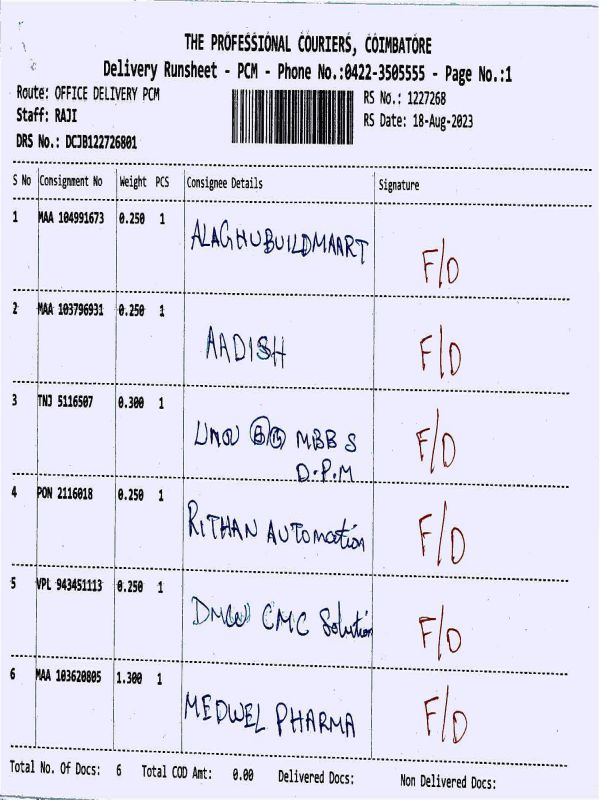 THE PROFESSIONAL COURIERS, COIMBATORE
Delivery Runsheet - PCM - Phone No.:0422-3505555 - Page No.:1
Route: OFFICE DELIVERY PCM RS No.: 1227268
Staff: RAJI RS Date: 18-Aug-2023
DRS No.: DCJB122726801
S No Consignment No Weight PCS Consignee Details Signature
1 MAA 104991673 0.250 1 ALAGHUBUILDMAART F/D
2 MAA 103796931 0.250 1 AADISH F/D
3 TNJ 5116507 0.300 1 MBBS F/D
D.P.M
4 PON 2116018 0.250 1 RITHAN AUTomation F/D
5 VPL 943451113 0.250 1 CMC Solution F/D
6 MAA 103620805 1.300 1 MEDWEL PHARMA F/D
Total No. Of Docs: 6 Total COD Amt: 0.00 Delivered Docs: Non Delivered Docs: